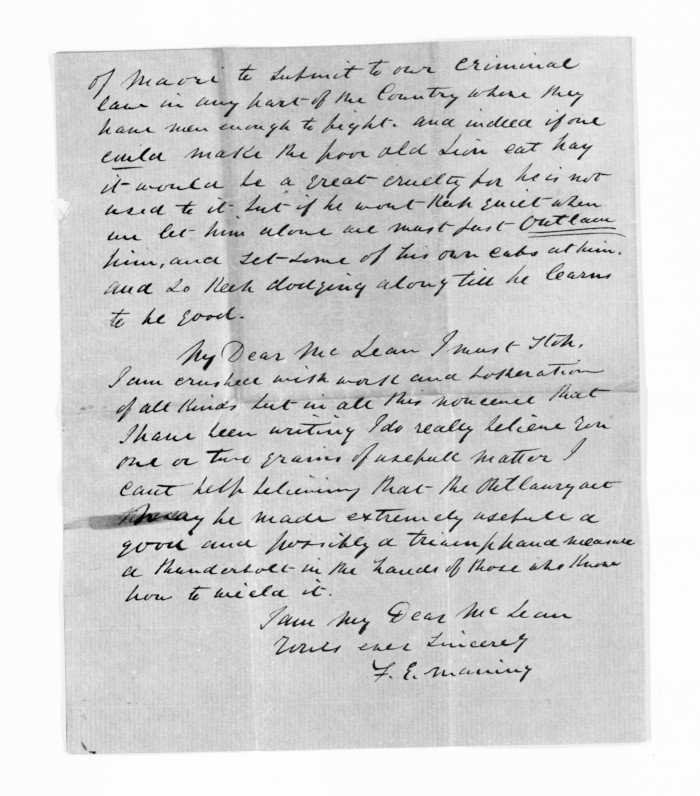 of Maori to submit to our criminal
law in any part of the Country where they
have men enough to fight. and indeed if one
could make the poor old Lion eat hay
it would be a great cruelty for he is not
used to it but if he wont keep quiet when
we let him alone we must just Outlaw
him, and set some of his own cubs at him.
and so keep dodging along till he learns
to be good.
My Dear Mc Lean I must stop,
I am crushed with work and botheration
of all kinds but in all this noncence that
I have been writing I do really believe
one or two grains of usefull matter I
cant help believing that the Outlawry act
may be made extremely usefull a
good and possibly a triumphand measure
a thunderbolt in the hands of those who know
how to wield it.
I am My Dear Mc Lean
Yours ever Sincerely
F. E. Maning